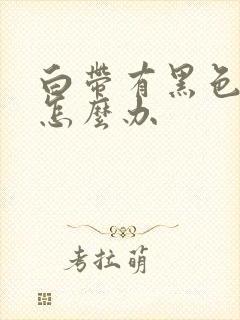 白带有黑色
怎麼办
考拉萌